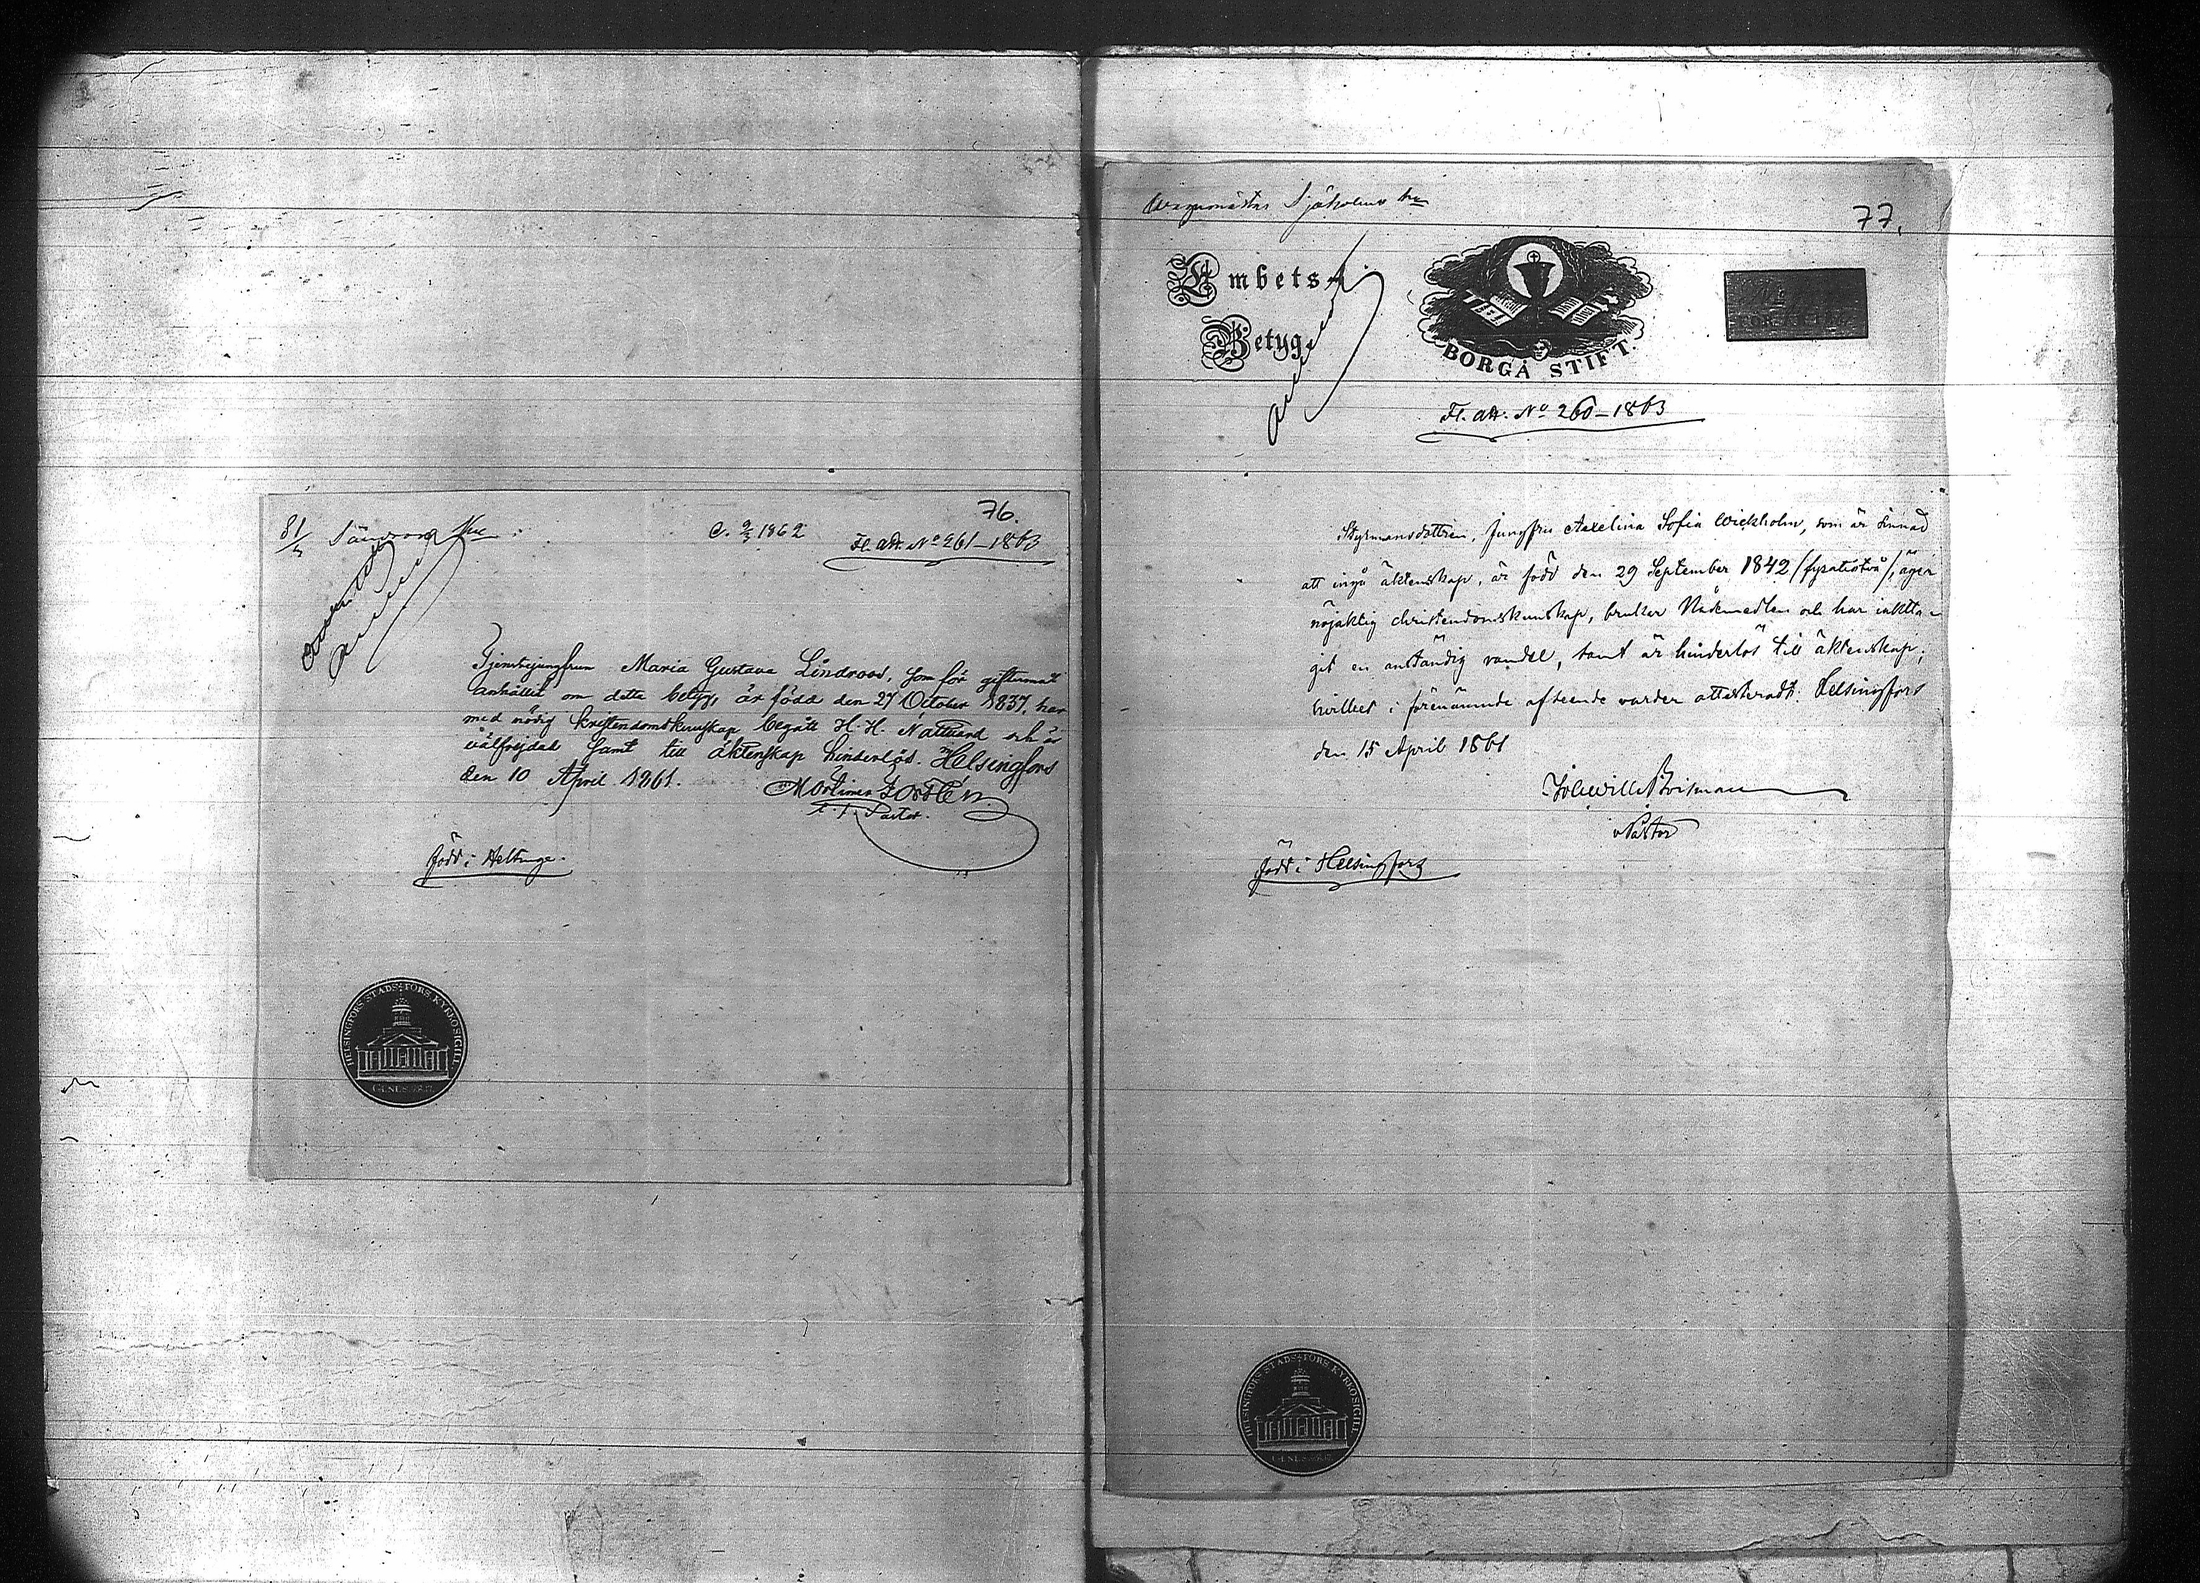 76.
81/5 Hu
C. 9/5 1862 Fl. att. No 261–1863
Tjenstejungfrun Maria Gustava Lindroos, som för giftermål
anhållit om detta betyg, är född den 27 October 1837, har
med nödig kristendomskunskap begått H. H. Nattvard och är
välfrejdad samt till äktenskap hinderlös. Helsingfors
den 10 April 1861.
t. f. Pastor.
född i Helsinge.
HELSINGFORS STADS-FÖRS. KYRKOSIGILL
Sjöholms hu
77.
Embets-
Betyg.
BORGÅ STIFT.
Fl. att. No 260–1863
Styrmansdottren, Jungfru Axelina Sofia Wickholm, som är sinnad
att ingå äktenskap, är född den 29 September 1842 /fyratiotvå/, äger
nöjaktig christendomskunskap, brukar Nådemedlen och har iaktta-
git en anständig vandel, samt är hinderlös till äktenskap;
hvilket i förenämnde afseende varder attesteradt. Helsingfors
den 15 April 1861
v Pastor
född i Helsingfors
HELSINGFORS STADS-FÖRS. KYRKOSIGILL